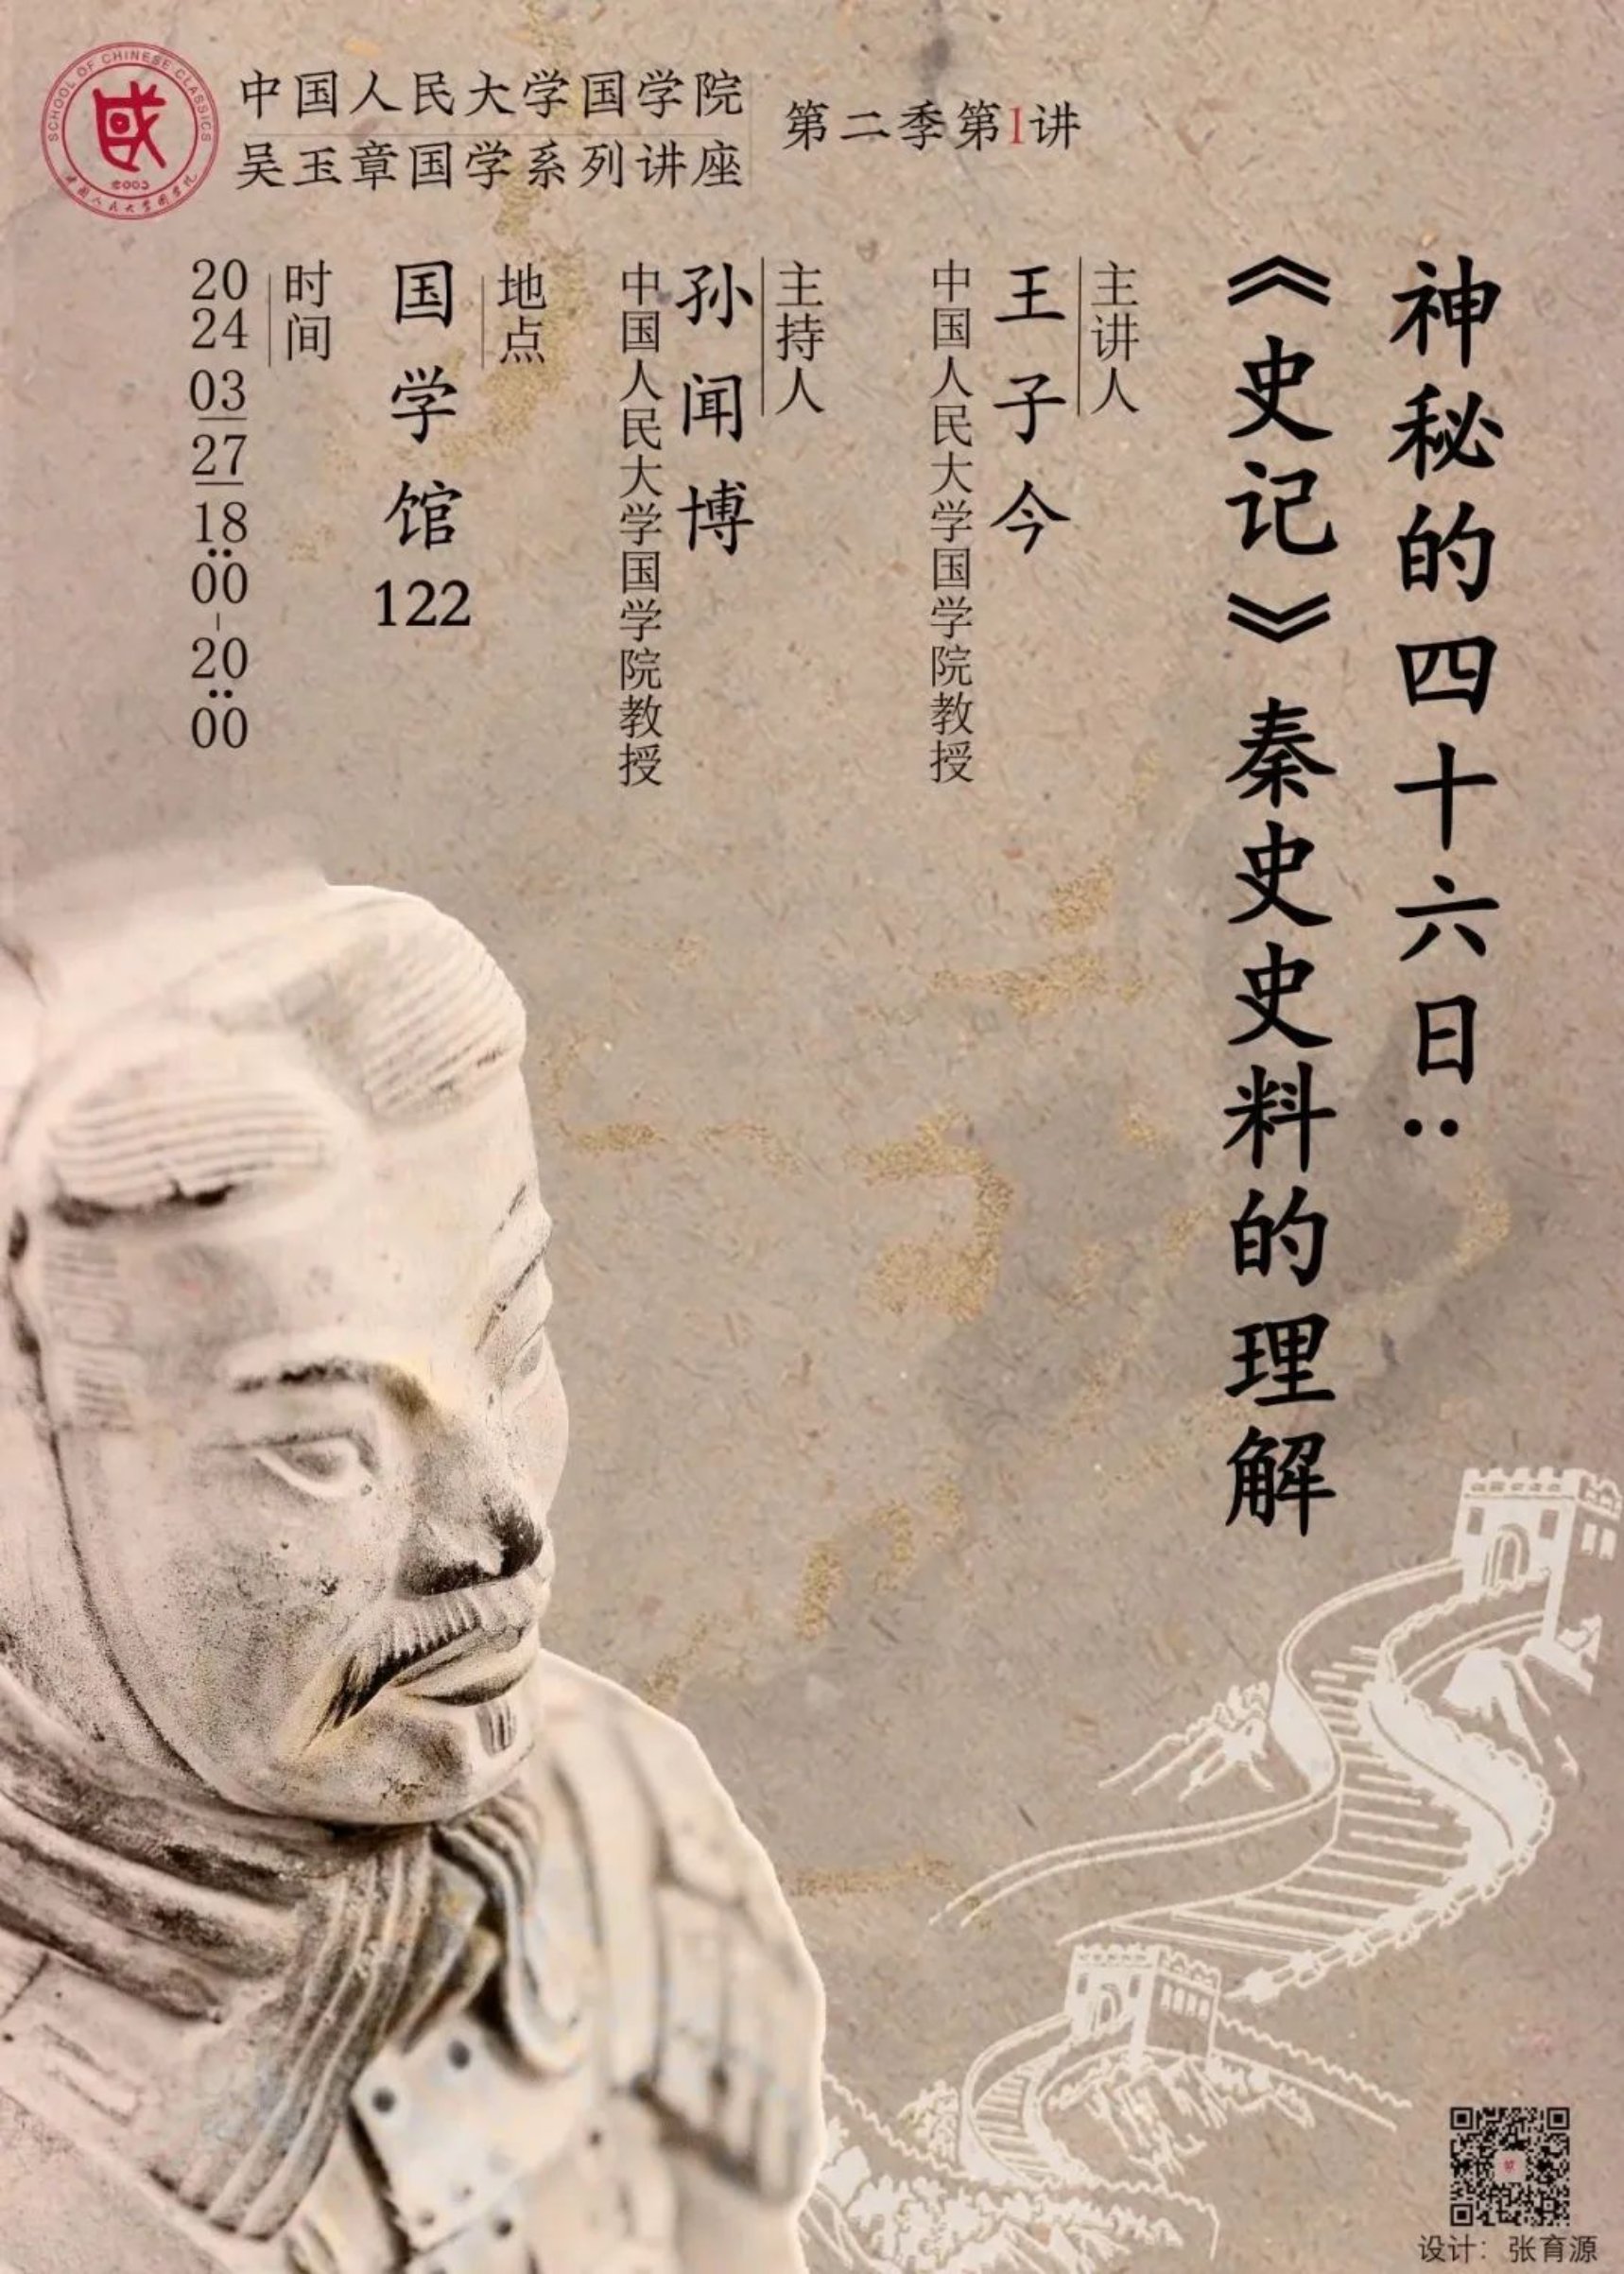 SCHOOL OF CHINESE CLASSICS
2003
中国人民大学国学院
中国人民大学国学院
吴玉章国学系列讲座
第二季第1讲
神秘的四十六日：
《史记》秦史史料的理解
主讲人
王子今
中国人民大学国学院教授
主持人
孙闻博
中国人民大学国学院教授
地点
国学馆122
时间
2024 03 27 18:00-20:00
设计：张育源